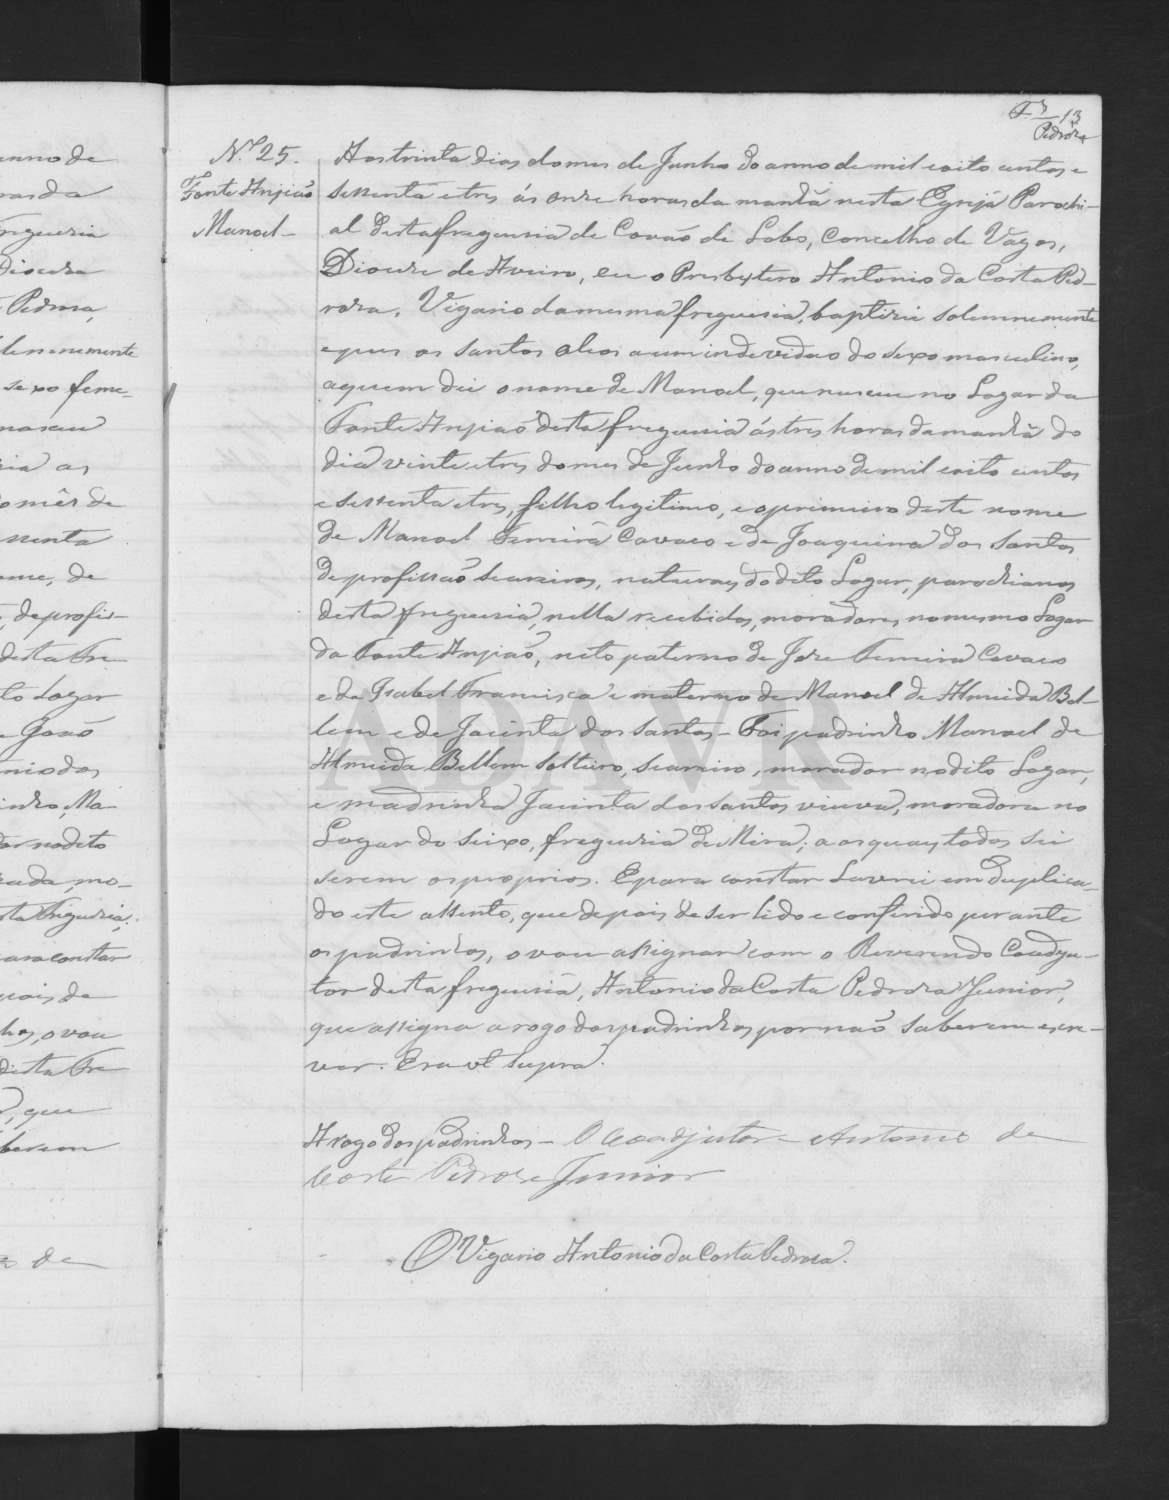 Fs 13
Pedroza
N.º 25.
Fonte Anjiaõ
Manoel -
Aos trinta dias do mes de Junho do anno de mil oito centos e
sessenta e tres ás onze horas da manhã nesta Egreja Parochi-
al desta freguesia de Covaõ do Lobo, Concelho de Vagos,
Diocese de Aveiro, eu o Presbytero Antonio da Costa Ped-
roza, Vigario da mesma freguesia, baptizei solemnemente
e puz os santos oleos a um individuo do sexo masculino,
a quem dei o nome de Manoel, que nasceu no Logar da
Fonte Anjiaõ desta freguesia ás tres horas da manhã do
dia vinte e tres do mes de Junho do anno de mil oito centos
e sessenta e tres, filho legitimo, e o primeiro deste nome
de Manoel Ferreira Cavaco e de Joaquina dos Santos
de profissaõ seareiros, naturaes do dito Logar, parochianos
desta freguesia, nella recebidos, moradores no mesmo Logar
da Fonte Anjiaõ, neto paterno de Joze Ferreira Cavaco
e de Isabel Francisca e materno de Manoel de Almeida Bel-
lem e de Jacinta dos Santos - Foi padrinho Manoel de
Almeida Bellem Solteiro, seareiro, morador no dito Logar,
e madrinha Jacinta dos Santos viuva, moradora no
Logar do Seixo, freguesia de Mira, a os quaes todos sei
serem os proprios. E para constar lavrei em duplica-
do este assento, que depois de ser lido e conferido perante
os padrinhos, o vou assignar com o Reverendo Coadju-
tor desta freguesia, Antonio da Costa Pedroza Junior,
que assigna a rogo dos padrinhos por naõ saberem escre-
ver. Era ut supra.
A rogo dos padrinhos - O Coadjutor - Antonio da
Costa Pedroza Junior
O Vigario Antonio da Costa Pedroza.